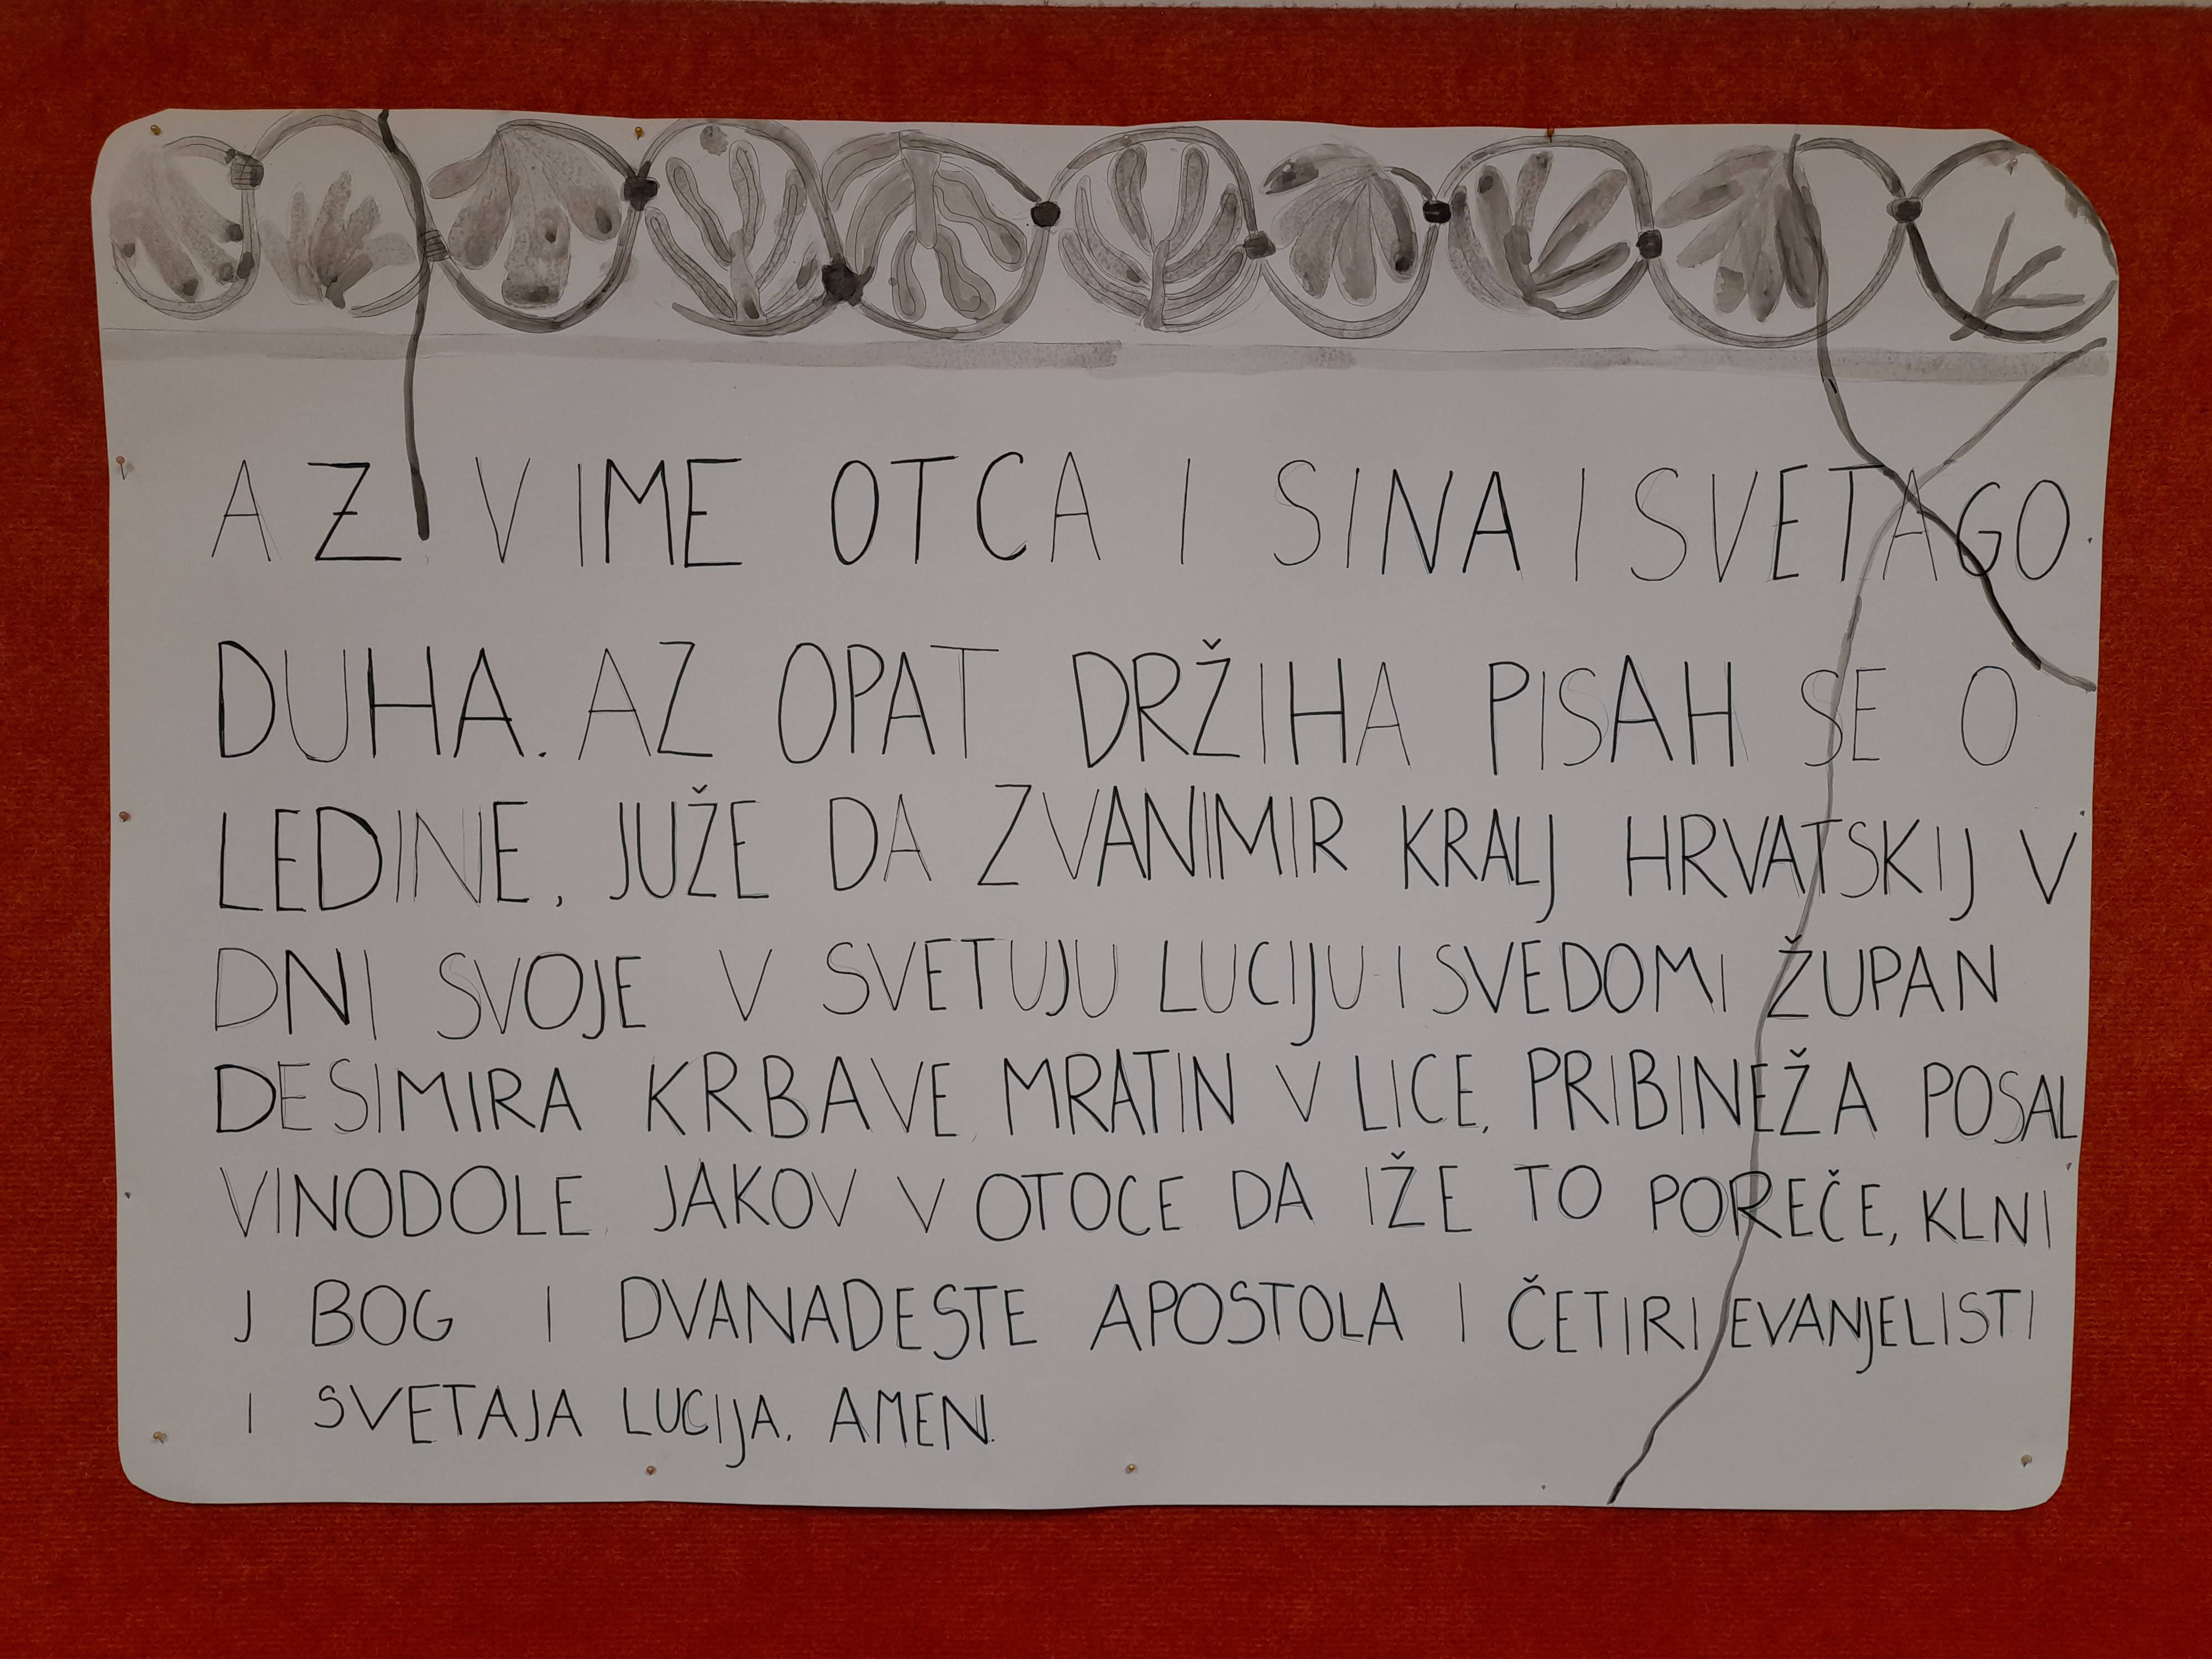 AZ, V IME OTCA I SINA I SVETAGO
DUHA. AZ OPAT DRŽIHA PISAH SE O
LEDINE, JUŽE DA ZVANIMIR KRALJ HRVATSKIJ V
DNI SVOJE V SVETUJU LUCIJU I SVEDOMI ŽUPAN
DESIMIRA KRBAVE, MRATIN V LICE, PRIBINEŽA POSAL
VINODOLE, JAKOV V OTOCE DA IŽE TO POREČE, KLNI
J BOG I DVANADESTE APOSTOLA I ČETIRI EVANJELISTI
I SVETAJA LUCIJA. AMEN.